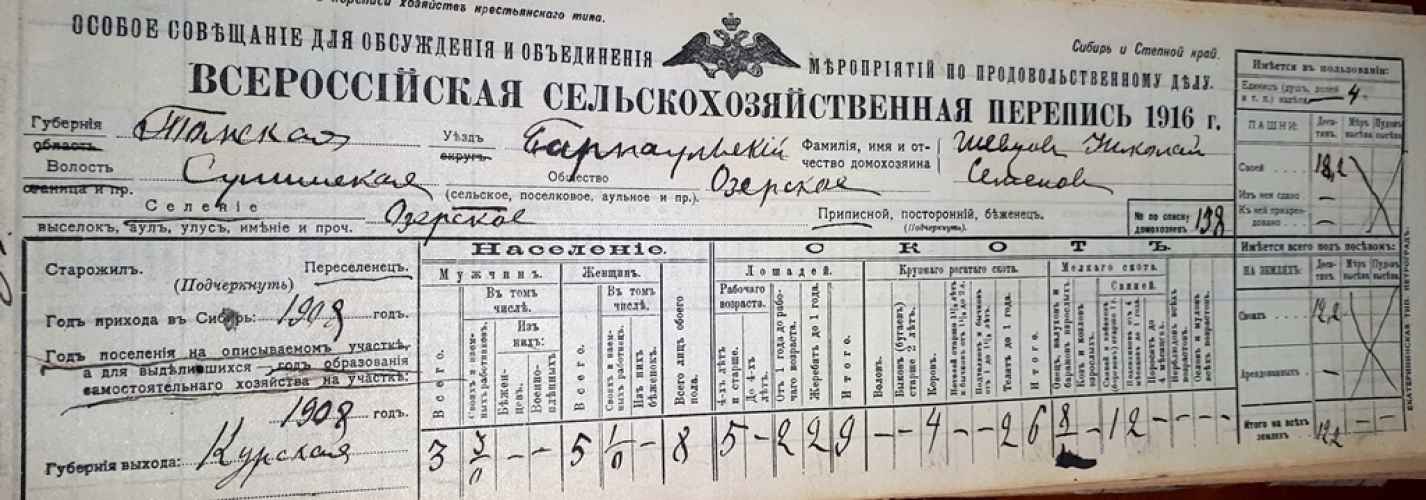 переписи хозяйствъ крестьянскаго типа.
ОСОБОЕ СОВѢЩАНІЕ ДЛЯ ОБСУЖДЕНІЯ И ОБЪЕДИНЕНІЯ МѢРОПРІЯТІЙ ПО ПРОДОВОЛЬСТВЕННОМУ ДѢЛУ.
Сибирь и Степной край.
ВСЕРОССІЙСКАЯ СЕЛЬСКОХОЗЯЙСТВЕННАЯ ПЕРЕПИСЬ 1916 г.
Губернія Томская Уѣздъ Барнаульскій Фамилія, имя и от- Шевцовъ Николай
область. округъ. чество домохозяина Семенов
Волость Общество Озерское
станица и пр. (сельское, поселковое, аульное и пр.).
Селеніе Озерское Приписной, посторонній, бѣженецъ.
выселокъ, аулъ, улусъ, имѣніе и проч. (Подчеркнуть).
№ по списку домохозяевъ 138
Имѣется въ пользованіи:
Единицъ (душ, долей
и т. п.) надѣла 4
ПАШНИ: Деся- тинъ. Мѣръ высѣва. Пудовъ высѣва.
Своей 18,2
Изъ нея сдано —
Къ ней приарен-
довано —
Имѣется всего подъ посѣвомъ:
НА ЗЕМЛЯХЪ: Деся- тинъ. Мѣръ высѣва. Пудовъ высѣва.
Своихъ 12,2
Арендованныхъ —
Итого на всѣхъ
земляхъ 12,2 — —
ЕКАТЕРИНИНСКАЯ ТИП. ПЕТРОГРАДЪ.
Старожилъ. Переселенецъ.
(Подчеркнуть)
Годъ прихода въ Сибирь: 1908 годъ.
Годъ поселенія на описываемомъ участкѣ,
а для выдѣлившихся — годъ образованія
самостоятельнаго хозяйства на участкѣ:
1908 годъ.
Губернія выхода: Курская
Населеніе.
Мужчинъ. Женщинъ.
Въ томъ числѣ. Въ томъ числѣ.
Изъ нихъ:
Всего.
Своихъ и наем- ныхъ работниковъ.
Бѣжен- цевъ.
Военно- плѣнныхъ
Всего.
Своихъ и наем- ныхъ работницъ.
Изъ нихъ бѣженокъ.
Всего лицъ обоего пола.
СКОТЪ.
Лошадей. Крупнаго рогатаго скота. Мелкаго скота.
Рабочаго возраста.
4-хъ лѣтъ и старше.
До 4-хъ лѣтъ.
Отъ 1 года до рабо- чаго возраста.
Жеребятъ до 1 года.
Итого.
Воловъ.
Быковъ (бугаевъ) старше 2 лѣтъ.
Коровъ.
Телятъ до 1 года.
Итого.
Овецъ, валуховъ и барановъ взрослыхъ.
Козъ и козловъ взрослыхъ.
Свиней.
3 3/0 — — 5 1/0 — 8 5 — 2 2 9 — — 4 — — 2 6 8 — 1 2 — — — —